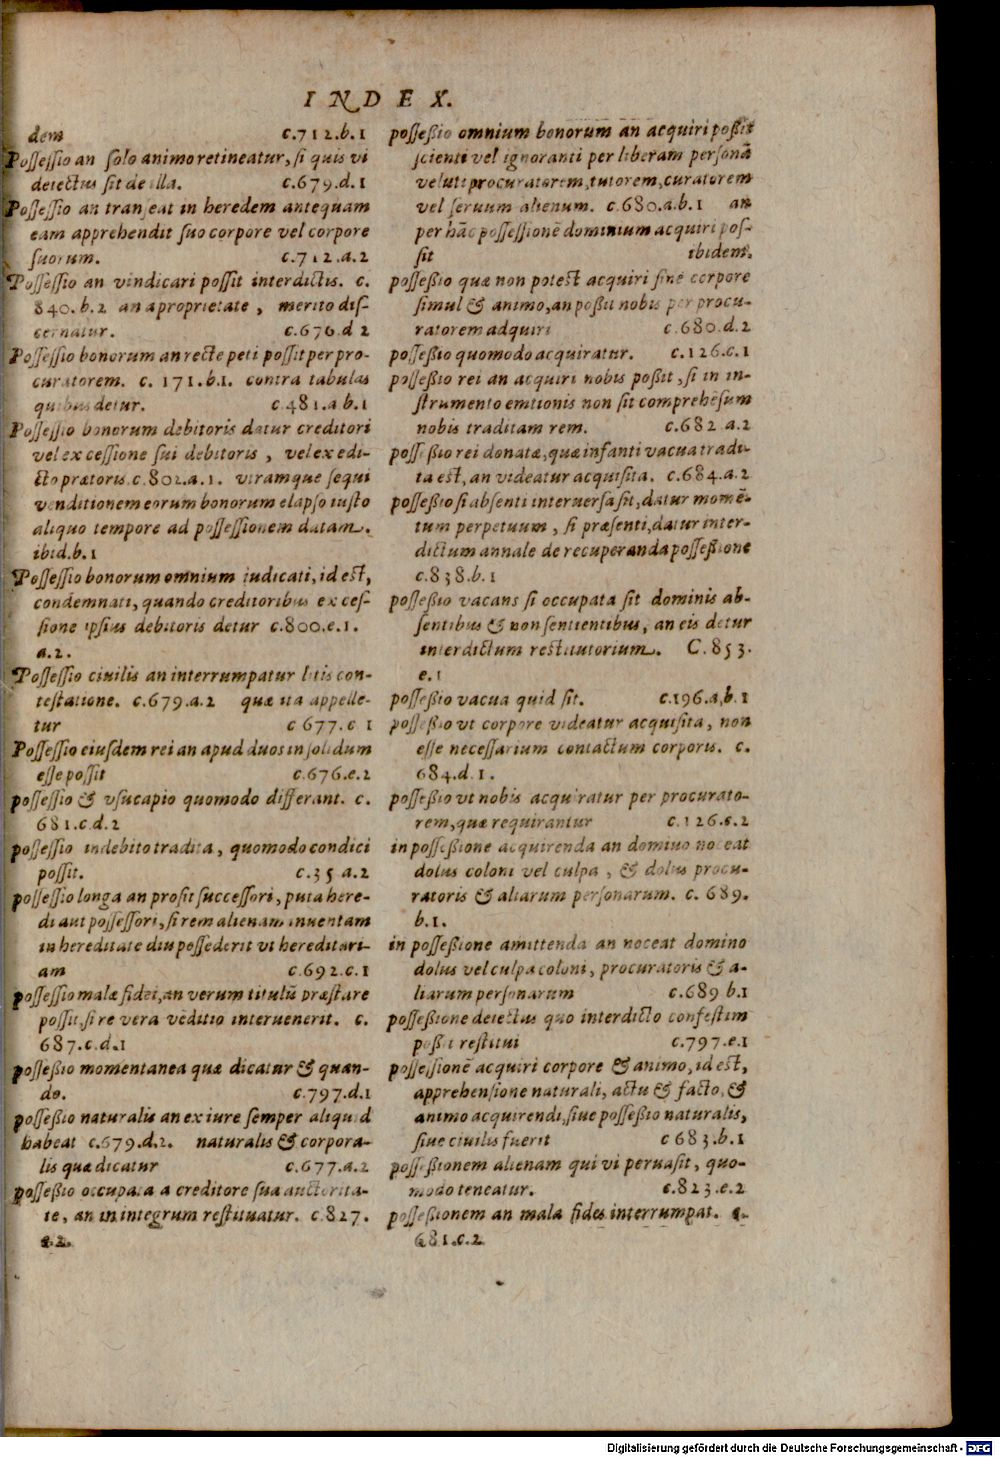 INDEX.
dem c.712.b.1
Possessio an solo animo retineatur, si quis vi
deiectus sit de illa. c.679.d.1
Possessio an transeat in heredem antequam
eam apprehendit suo corpore vel corpore
suorum. c.712.a.2
Possessio an vindicari possit interdictis. c.
840.b.2 an a proprietate, merito dis-
cernatur. c.676.d 2
Possessio bonorum an recte peti possit per pro-
curatorem. c. 171.b.1. contra tabulas
quibus detur. c.481.a b.1
Possessio bonorum debitoris datur creditori
vel ex cessione sui debitoris, vel ex edi-
cto pratoris.c.802.a.1. vtramque sequi
venditionem eorum bonorum elapso iusto
aliquo tempore ad possessionem datam.
ibid.b.1
Possessio bonorum omnium iudicati, id est,
condemnati, quando creditoribus ex ces-
sione ipsius debitoris detur c.800.e.1.
a.2.
Possessio ciuilis an interrumpatur litis con-
testatione. c.679.a.2 quæ ita appelle-
tur c 677.c 1
Possessio eiusdem rei an apud duos in solidum
esse possit c.676.e.2
possessio & vsucapio quomodo differant. c.
681.c.d.2
possessio indebito tradita, quomodo condici
possit. c.35 a.2
possessio longa an prosit successori, puta here-
di aut possessori, si rem alienam inuentam
in hereditate diu possederit vt hereditari-
am c.692.c.1
possessio malæ fidei, an verum titulū præstare
possit, si re vera vēditio interuenerit. c.
687.c.d.1
posseßio momentanea quæ dicatur & quan-
do. c.797.d.1
possessio naturalis an ex iure semper aliquid
habeat c.679.d.2. naturalis & corpora-
lis quæ dicatur c.677.a.2
possessio occupata a creditore sua auctorita-
te, an in integrum restituatur. c.827.
e.2.
possessio omnium bonorum an acquiri possit
scienti vel ignoranti per liberam personā
veluti procuratorem, tutorem, curatorem
vel seruum alienum. c.680.a.b.1 an
per hāc possessionē dominium acquiri pos-
sit ibidem.
possessio quæ non potest acquiri sine corpore
simul & animo, an possit nobis per procu-
ratorem adquiri c.680.d.2
possessio quomodo acquiratur. c.126.c.1
possessio rei an acquiri nobis possit, si in in-
strumento emtionis non sit comprehēsum
nobis traditam rem. c.682 a.2
possessio rei donatæ, quæ infanti vacua tradi-
ta est, an videatur acquisita. c.684.a.2
possessio si absenti interuersa sit, datur momē-
tum perpetuum, si præsenti, datur inter-
dictum annale de recuperanda possessione
c.838.b.1
possessio vacans si occupata sit dominis ab-
sentibus & non sentientibus, an eis detur
interdictum restitutorium. C.853.
e.1
possessio vacua quid sit. c.196.a,b.1
possessio vt corpore videatur acquisita, non
esse necessarium contactum corporis. c.
684.d.1.
possessio vt nobis acquiratur per procurato-
rem, quæ requirantur c.126.e.2
in possessione acquirenda an domino noceat
dolus coloni vel culpa, & dolus procu-
ratoris & aliarum personarum. c. 689.
b.1.
in possessione amittenda an noceat domino
dolus vel culpa coloni, procuratoris & a-
liarum personarum c.689 b.1
possessione deiectus quo interdicto confestim
possit restitui c.797.e.1
possessionē acquiri corpore & animo, id est,
apprehensione naturali, actu & facto, &
animo acquirendi, siue possessio naturalis,
siue ciuilis fuerit c 683.b.1
possessionem alienam qui vi peruasit, quo-
modo teneatur. c.823.e.2
possessionem an mala fides interrumpat. c.
681.c.2
Digitalisierung gefördert durch die Deutsche Forschungsgemeinschaft - DFG